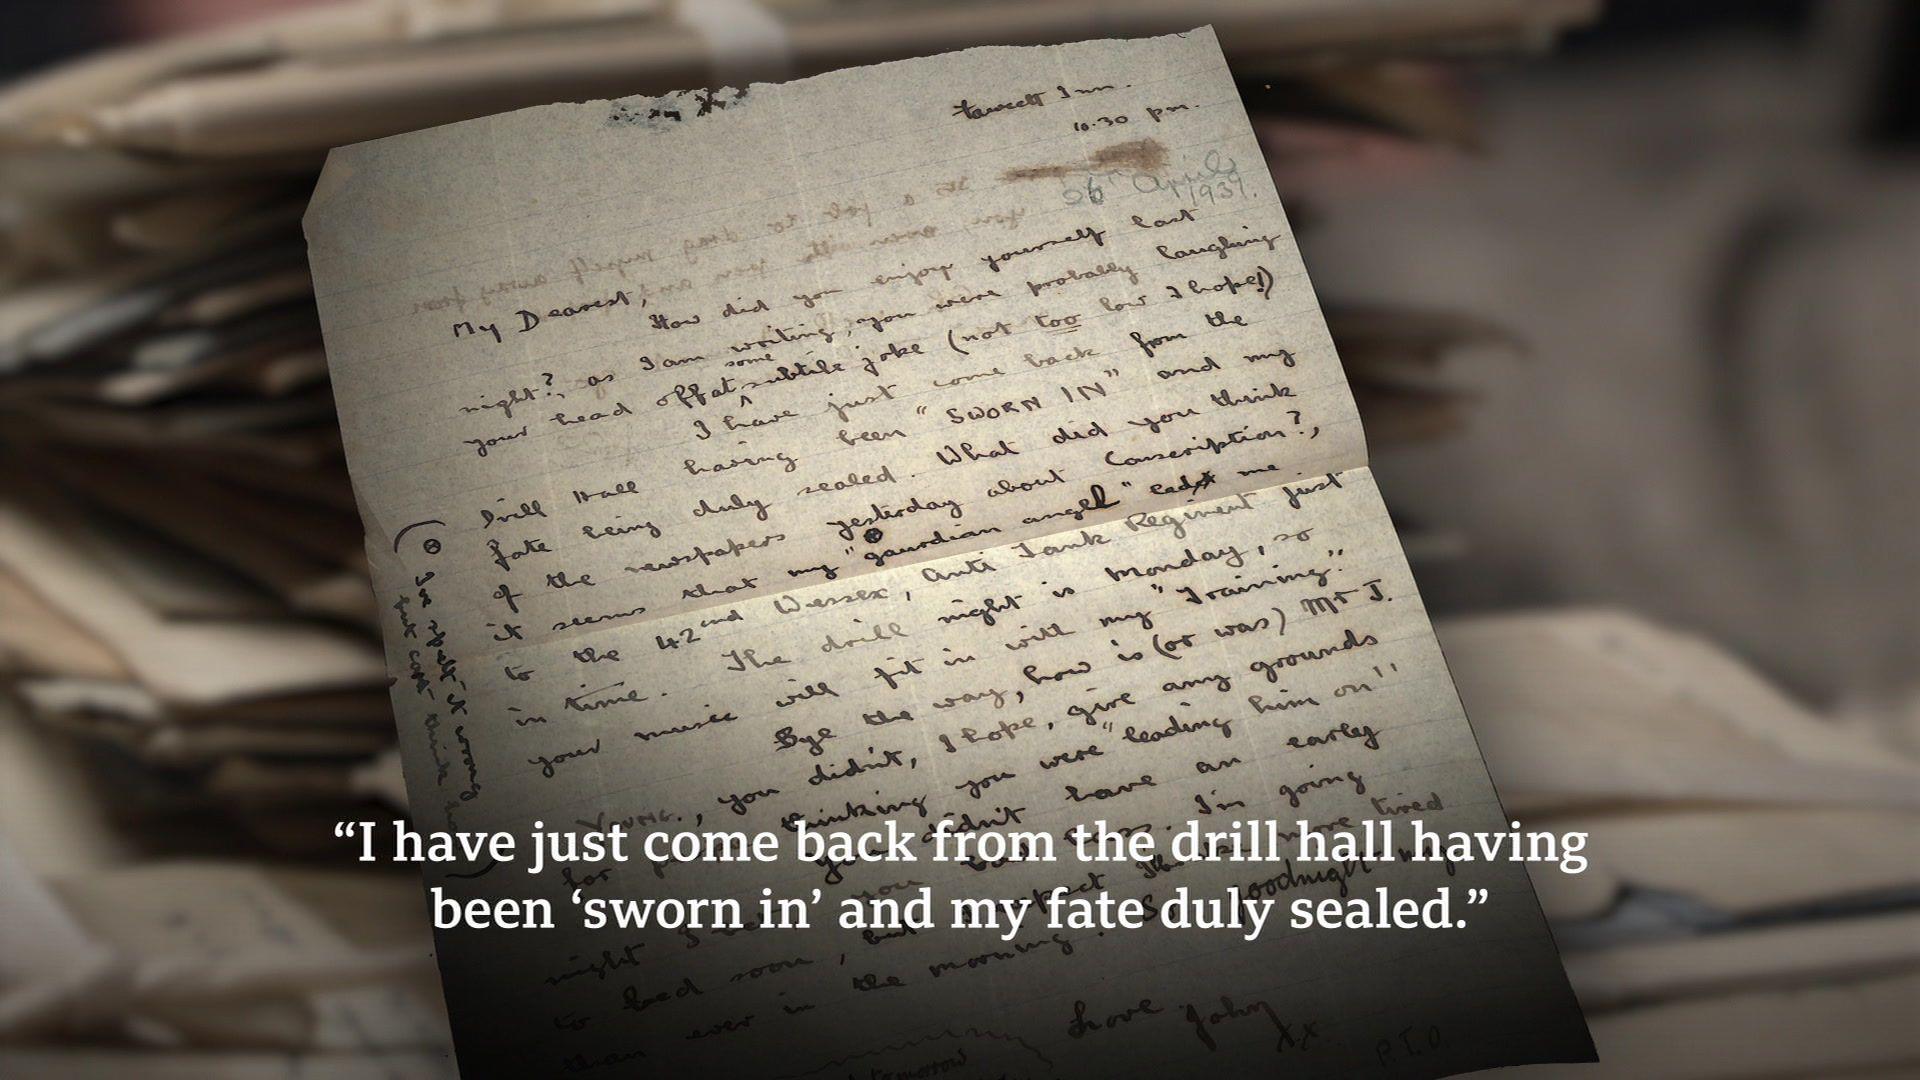 Inn.
10.30 pm.
26th April
1939.
My Dearest,
How did you enjoy yourself last
night?, as I am writing, you were probably laughing
your head off at some subtile joke (not too low I hope!)
I have just come back from the
Drill Hall having been "SWORN IN" and my
fate being duly sealed. What did you think
of the newspapers yesterday about Conscription?,
it seems that my "gaurdian angel" led me
to the 42nd Wessex, Anti Tank Regiment just
in time. The drill night is Monday, so
your music will fit in with my "Training".
Bye the way, how is (or was) Mr J.
Young., you didn't, I hope, give any grounds
for thinking you were "leading him on"
you didn't have an early
night I bet you bad lass. I'm going
to bed soon, but expect I'll be more tired
than ever in the morning. So goodnight my
Love John
xx
P.T.O.
tomorrow
(⊗ I've spelt it wrong
but can't think how
)
“I have just come back from the drill hall having
been ‘sworn in’ and my fate duly sealed.”